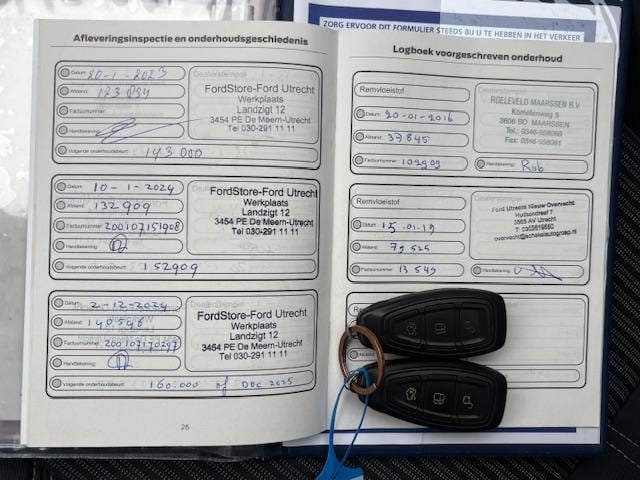 ZORG ERVOOR DIT FORMULIER STEEDS BIJ U TE HEBBEN IN HET VERKEER
Afleveringsinspectie en onderhoudsgeschiedenis
Datum: 20-1-2023
Afstand: 123 894
Factuurnummer:
Handtekening:
Volgende onderhoudsbeurt: 143 000
Dealerstempel
FordStore-Ford Utrecht
Werkplaats
Landzigt 12
3454 PE De Meern-Utrecht
Tel 030-291 11 11
Datum: 10-1-2024
Afstand: 132909
Factuurnummer: 200107151908
Handtekening:
Volgende onderhoudsbeurt: 152909
FordStore-Ford Utrecht
Werkplaats
Landzigt 12
3454 PE De Meern-Utrecht
Tel 030-291 11 11
Datum: 2-12-2024
Afstand: 140598
Factuurnummer: 200107170297
Handtekening:
Volgende onderhoudsbeurt: 160.000 of Dec 2025
Dealerstempel
FordStore-Ford Utrecht
Werkplaats
Landzigt 12
3454 PE De Meern-Utrecht
Tel 030-291 11 11
26
Logboek voorgeschreven onderhoud
Remvloeistof
Datum: 20-01-2016
Afstand: 37845
Factuurnummer: 102909
Dealerstempel
ROELEVELD MAARSSEN B.V
Kometenweg 5
3606 BD MAARSSEN
Tel.: 0346-558060
Fax: 0346-558061
Handtekening: Rob
Remvloeistof
Datum: 15-01-19
Afstand: 79525
Factuurnummer: 13549
Ford Utrecht Nieuw Overvecht
3565 AV Utrecht
Handtekening:
Afstand: